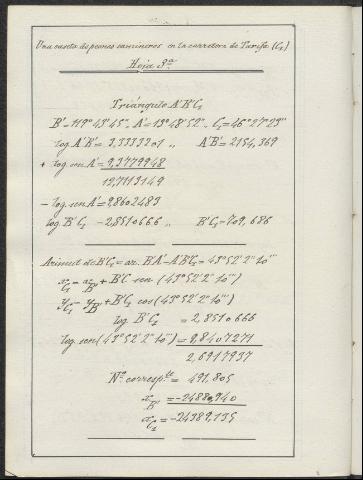 Una caseta de peones camineros en la carretera de Tarifa (C₁)
Hoja 3ª
Triángulo A'B'C₁
B'=119°43'45", A'=13°48'52", C₁=46°27'23"
log A'B'= 3,3333201 ,, A'B'= 2154,369
+ log sen A'= 9,3779948
12,7113149
- log sen C₁= 9,8602483
log B'C₁ = 2,8510666 ,, B'C₁= 709,686
Azimut de B'C₁ = az. B'A'-A'B'C₁ = 43°52'2"10'''
x_C₁ = x_B' + B'C sen (43°52'2"10''')
y_C₁ = y_B' + B'C₁ cos (43°52'2"10''')
log B'C₁ = 2,8510666
log sen (43°52'2"10''') = 9,8407271
2,6917937
Nº corresp.te = 491,805
x_B' = -24880,940
x_C₁ = -24389,135